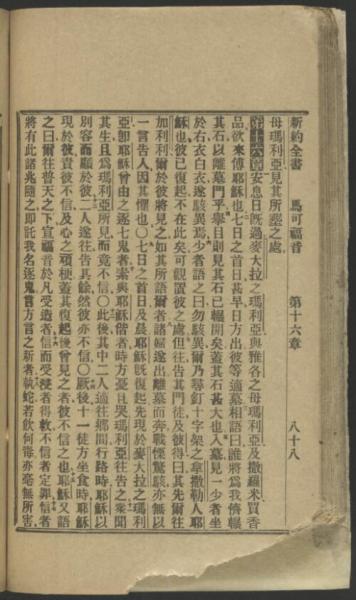 新約全書　馬可福音　第十六章　八十八
母瑪利亞見其所塟之處
第十六章安息日旣過麥大拉之瑪利亞與雅各之母瑪利亞及撒羅米買香
品欲來傅耶穌也七日之首日甚早日方出彼等適墓相語曰誰將爲我儕輥
其石以離墓門乎舉目則見其石已輥開矣蓋其石甚大也入墓見一少者坐
於右衣白衣遂駭異焉少者語之曰勿駭異爾乃尋釘十字架之拿撒勒人耶
穌也彼已復起不在此矣可觀置彼之處但往告其門徒及彼得曰其先爾往
加利利爾於彼將見之如其所語爾者諸婦遂出離墓而奔戰慄驚駭亦無以
一言告人因其懼也〇七日之首日及晨耶穌旣復起先現於麥大拉之瑪利
亞卽耶穌曾由之逐七鬼者素與耶穌偕者時方憂且哭瑪利亞往告之衆聞
其生且爲瑪利亞所見而竟不信〇此後其中二人適往鄉間行路時耶穌以
別容而顯於彼二人遂往告其餘然彼亦不信〇厥後十一徒方坐食時耶穌
現於彼責彼不信及心之頑梗蓋其復起後曾見之者彼不信之也耶穌又語
之曰爾往普天之下宣福音於凡受造者信而受浸者得救不信者定罪信者
將有此諸兆隨之卽託我名逐鬼言方言之新者執蛇若飮何毒亦毫無所害